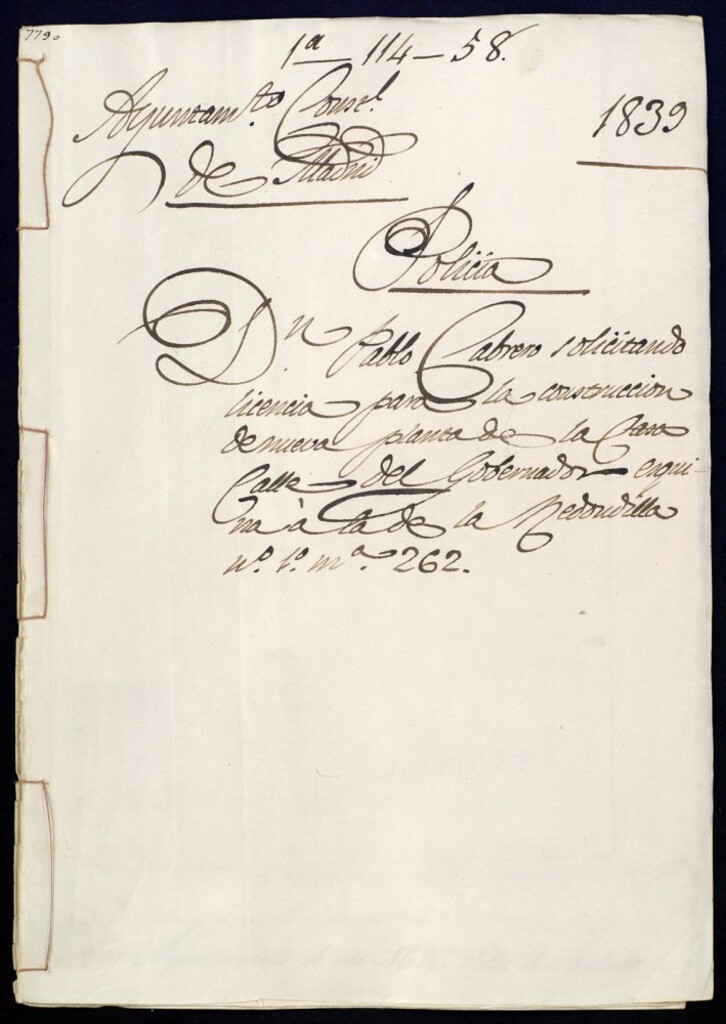 779.
1ª — 114 — 58.
Ayuntamto. Consl.
1839
de Madrid
Policia
Dn Pablo Cabrero solicitando
licencia para la construccion
de nueva planta de la Casa
Calle del Gobernador esqui-
na à la de la Redondilla
nº. 1º. mª. 262.